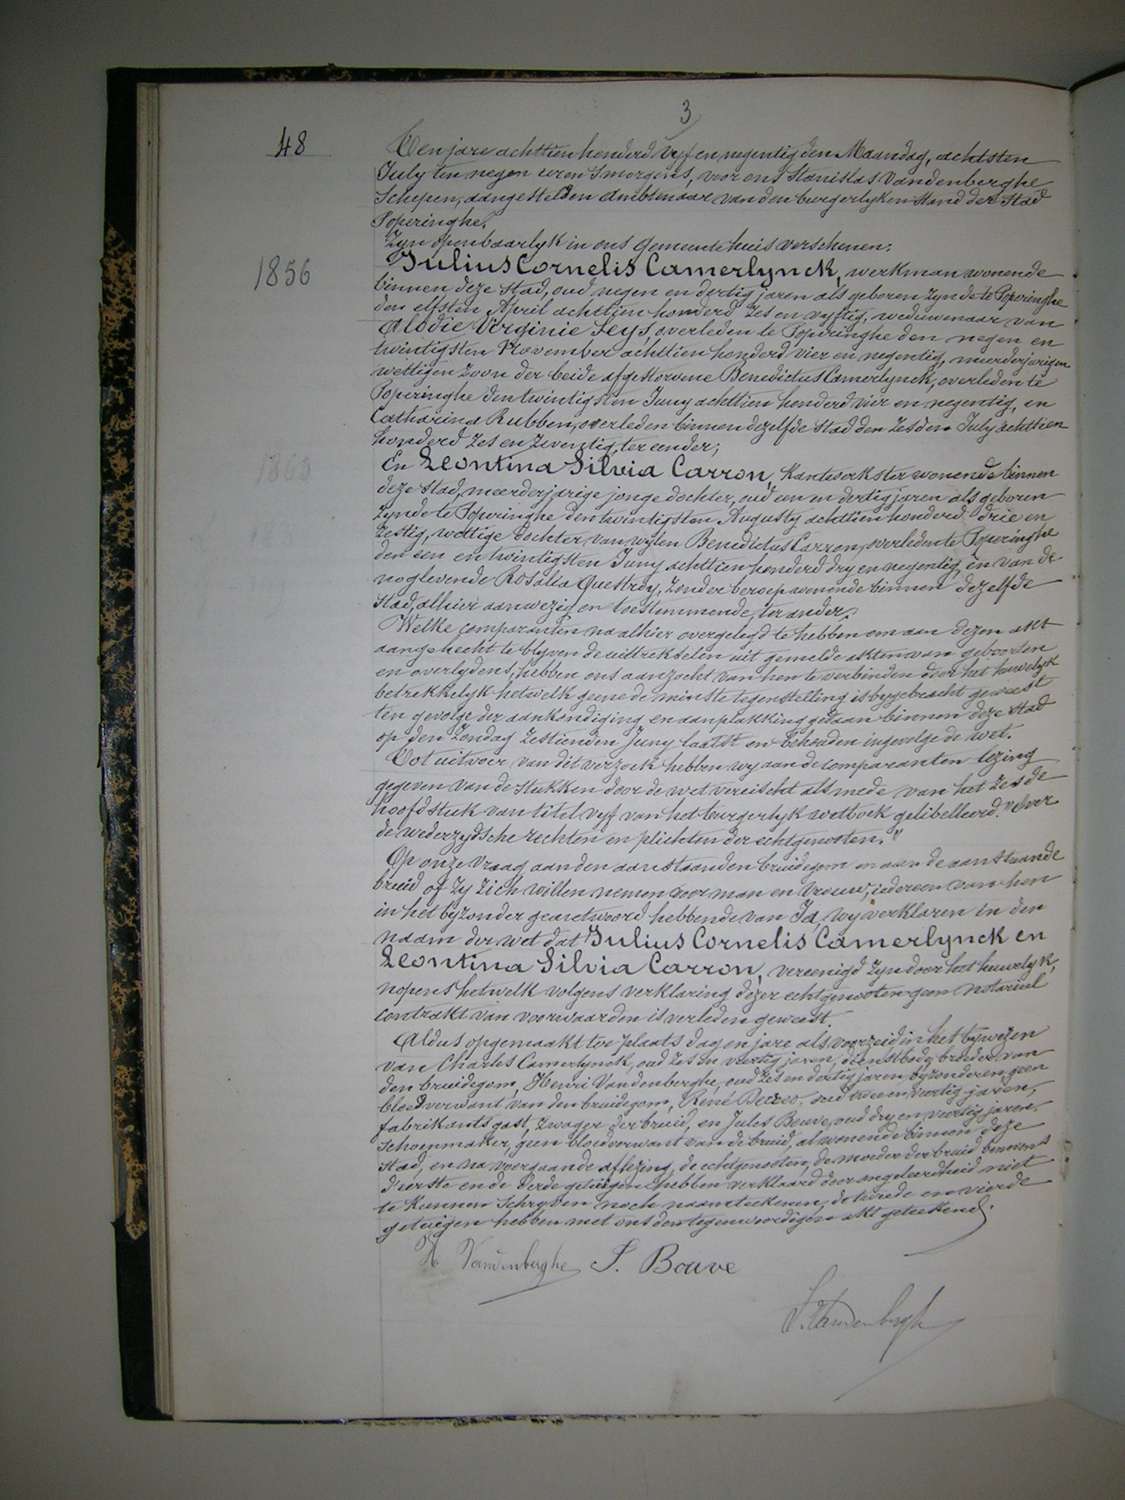 3
48
Ten jare achttien honderd vyf en negentig den Maandag, achtsten
July ten negen uren 's morgens, voor ons Stanislas Vandenberghe,
Schepen, aangestelden ambtenaar van den burgerlyken Stand der Stad
Poperinghe,
Zyn openbaarlyk in ons gemeentehuis verschenen:
1856
Julius Cornelis Camerlynck, werkman wonende
binnen deze stad, oud negen en dertig jaren als geboren zynde te Poperinghe
den elfsten April achttien honderd zes en vyftig, weduwenaar van
Elodie Virginie Seys overleden te Poperinghe den negen en
twintigsten November achttien honderd vier en negentig, meerderjarigen
wettigen zoon der beide afgestorvene Benedictus Camerlynck, overleden te
Poperinghe den twintigsten Juny achttien honderd vier en negentig, en
Catharina Rubben, overleden binnen dezelfde stad den zesden July achttien
honderd zes en zeventig, ter eender;
1863
En Leontina Silvia Carron, Kantwerkster wonende binnen
deze stad, meerderjarige jonge dochter, oud een en dertig jaren als geboren
zynde te Poperinghe den twintigsten Augusty achttien honderd drie en
zestig, wettige dochter van wylen Benedictus Carron, overleden te Poperinghe
den een en twintigsten Juny achttien honderd dry en negentig, en van de
noglevende Rosalia Questroy, zonder beroep wonende binnen dezelfde
stad, alhier aanwezig en toestemmende, ter ander.
Welke comparanten na alhier overgelegd te hebben om aan dezen akt
aangehecht te blyven de uittrekselen uit gemelde akten van geboorten
en overlydens, hebben ons aanzocht van hen te verbinden door het huwelyk
betrekkelyk hetwelk geene de minste tegenstelling is bygebracht geweest
ten gevolge der aankondiging en aanplakking gedaan binnen deze stad
op den Zondag zestienden Juny laatst en behouden ingevolge de wet.
Tot uitvoer van dit verzoek hebben wy aan de comparanten lezing
gegeven van de stukken door de wet vereischt als mede van het zesde
hoofdstuk van titel vyf van het burgerlyk wetboek gelibelleerd: "Over
de wederzydsche rechten en plichten der echtgenooten."
Op onze vraag aan den aanstaanden bruidegom en aan de aanstaande
bruid of zy zich willen nemen voor man en vrouw, iedereen van hen
in het byzonder geantwoord hebbende van Ja, wy verklaren in den
naam der wet dat Julius Cornelis Camerlynck en
Leontina Silvia Carron, vereenigd zyn door het huwelyk,
nopens hetwelk volgens verklaring dezer echtgenooten geen notarieel
contrakt van voorwaarden is verleden geweest.
Aldus opgemaakt ter plaats dag en jare als voorzeid in het bywezen
van Charles Camerlynck, oud zes en veertig jaren, dienstbode, broeder van
den bruidegom, Henri Vandenberghe, oud zes en dertig jaren, byzonderen geen
bloedverwant van den bruidegom, René oud twee en veertig jaren,
fabrikantsgast, zwager der bruid, en Jules Bouve, oud dry en veertig jaren,
schoenmaker, geen bloedverwant van de bruid, al wonende binnen deze
stad, en na voorgaande aflezing, de echtgenooten, de moeder der bruid benevens
d'eerste en de derde getuigen hebben verklaard door ongeleerdheid niet
te kunnen schryven noch naamteekenen, de tweede en vierde
getuigen hebben met ons den tegenwoordigen akt geteekend.
H Vandenberghe J. Bouve
S. Vandenbergh